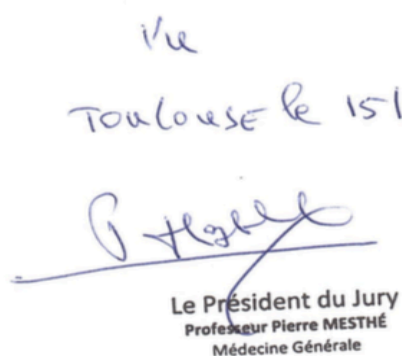 Vu
TOULOUSE le 151
Le Président du Jury
Professeur Pierre MESTHÉ
Médecine Générale